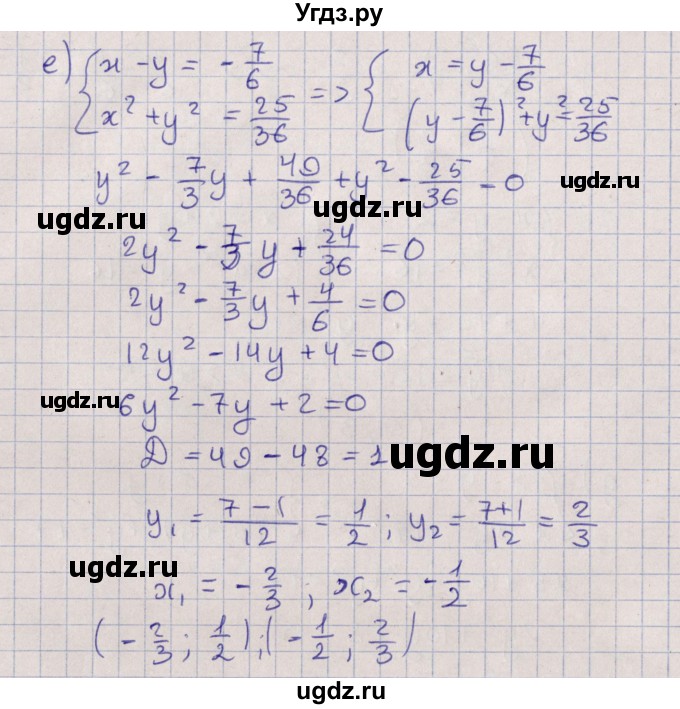 Угдз.ру
е) { x - y = - 7/6 => { x = y - 7/6
x² + y² = 25/36 (y - 7/6)² + y² = 25/36
y² - 7/3 y + 49/36 + y² - 25/36 = 0 ugdz.ru
ugdz.ru ugdz.ru
2y² - 7/3 y + 24/36 = 0
2y² - 7/3 y + 4/6 = 0
12y² - 14y + 4 = 0
ugdz.ru 6y² - 7y + 2 = 0
Д = 49 - 48 = 1 ugdz.ru
y₁ = (7 - 1)/12 = 1/2 ; y₂ = (7+1)/12 = 2/3
ugdz.ru x₁ = - 2/3 ; x₂ = - 1/2
(- 2/3 ; 1/2) ; (- 1/2 ; 2/3)
ugdz.ru